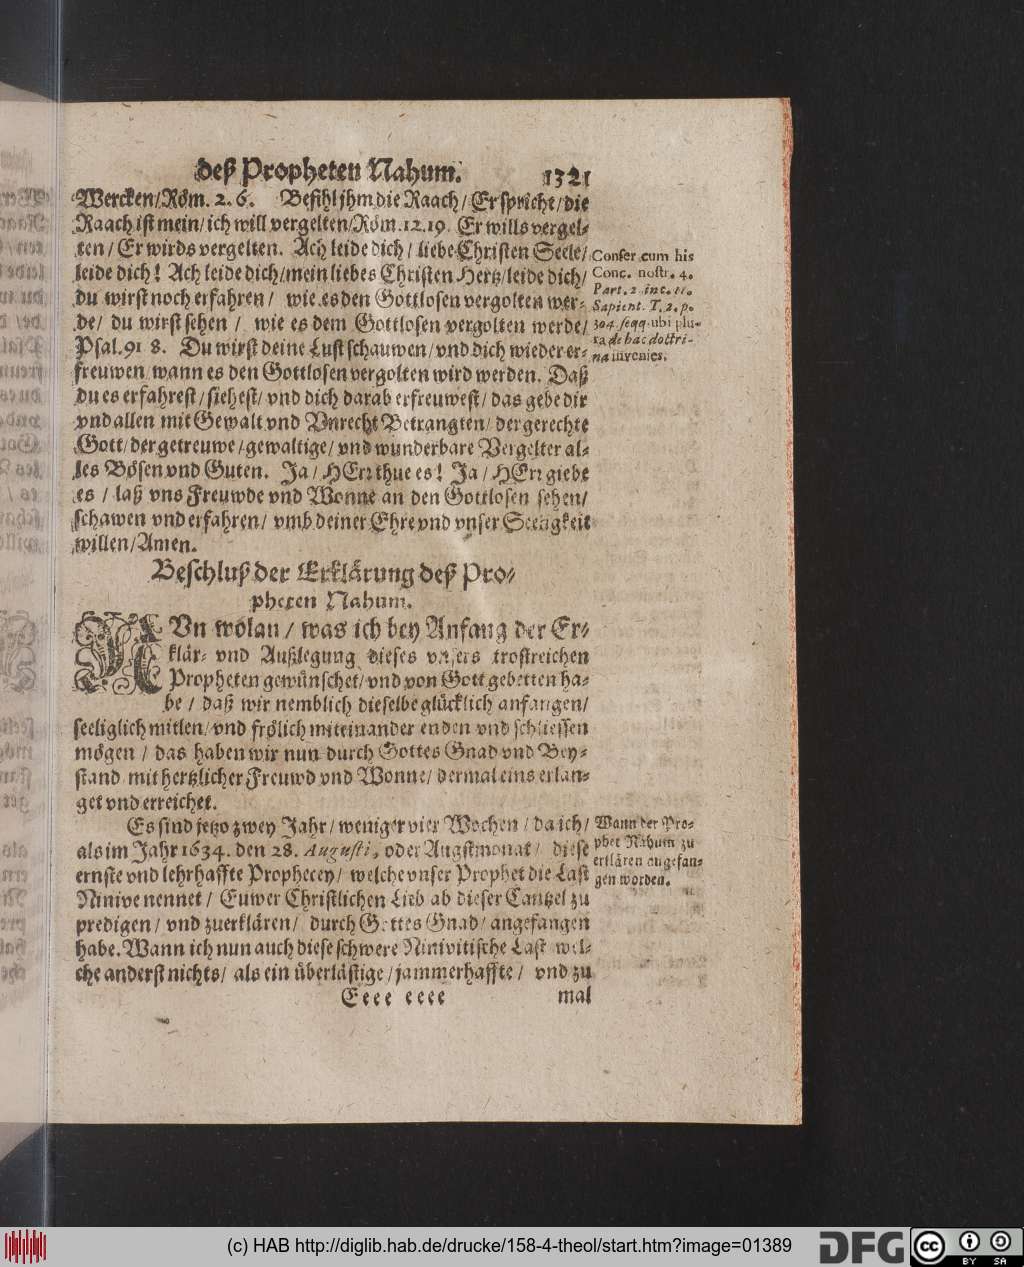 deß Propheten Nahum. 1321
Wercken/Röm. 2. 6. Befihl jhm die Raach/ Er spricht/die
Raach ist mein/ich will vergelten/Röm.12.19. Er wills vergel-
ten/Er wirds vergelten. Ach leide dich/ liebe Christen Seele/
leide dich! Ach leide dich/mein liebes Christen Hertz/leide dich/
du wirst noch erfahren/ wie es den Gottlosen vergolten wer-
de/ du wirst sehen/ wie es dem Gottlosen vergolten werde/
Psal.91 8. Du wirst deine Lust schauwen/vnd dich wieder er-
freuwen wann es den Gottlosen vergolten wird werden. Daß
du es erfahrest/siehest/vnd dich darab erfreuwest/das gebe dir
vnd allen mit Gewalt vnd Vnrecht Betrangten/der gerechte
Gott/der getreuwe/gewaltige/vnd wunderbare Vergelter al-
les Bösen vnd Guten. Ja/HErr thue es! Ja/HErr giebe
es/laß vns Freuwde vnd Wonne an den Gottlosen sehen/
schawen vnd erfahren/vmb deiner Ehre vnd vnser Seeligkeit
willen/Amen.
Confer cum his
Conc. nostr. 4.
Part. 2. in c. 11.
Sapient. T. 2. p.
304. seqq. ubi plu-
ra de hac doctri-
na invenies.
Beschluß der Erklärung deß Pro-
pheten Nahum.
NVn wolan/was ich bey Anfang der Er-
klär- vnd Außlegung dieses vnsers trostreichen
Propheten gewünschet/vnd von Gott gebetten ha-
be/ daß wir nemblich dieselbe glücklich anfangen/
seeliglich mitlen/vnd frölich miteinander enden vnd schliessen
mögen/ das haben wir nun durch Gottes Gnad vnd Bey-
stand mit hertzlicher Freuwd vnd Wonne/dermaleins erlan-
get vnd erreichet.
Es sind jetzo zwey Jahr/weniger vier Wochen/da ich/
als im Jahr 1634. den 28. Augusti, oder Augstmonat/ diese
ernste vnd lehrhaffte Prophecey/welche vnser Prophet die Last
Ninive nennet/ Euwer Christlichen Lieb ab dieser Cantzel zu
predigen/ vnd zuerklären/ durch Gottes Gnad/angefangen
habe. Wann ich nun auch diese schwere Ninivitische Last wel-
che anderst nichts/als ein überlästige/jammerhaffte/ vnd zu
Wann der Pro-
phet Nahum zu
erklären angefan-
gen worden.
Eeee eeee mal
(c) HAB http://diglib.hab.de/drucke/158-4-theol/start.htm?image=01389
DFG
cc BY SA